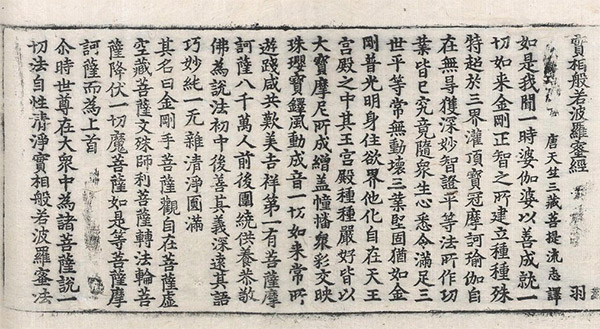 實相般若波羅蜜經
羽
唐天竺三藏菩提流志譯
如是我聞一時婆伽婆以善成就一
切如來金剛正智之所建立種種殊
特超於三界灌頂寶冠摩訶瑜伽自
在無㝵獲深妙智證平等法所作切
業皆已究竟隨衆生心悉令滿足三
世平等常無動壞三業堅固猶如金
剛普光明身住欲界他化自在天王
宫殿之中其王宫殿種種嚴好皆以
大寶摩尼所成繒盖幢幡衆彩交映
珠瓔寶鐸風動成音一切如來常所
遊踐咸共歎美吉祥第一有菩薩摩
訶薩八千萬人前後圍繞供養恭敬
佛為說法初中後善其義深遠其語
巧妙純一无雜清淨圓滿
其名曰金剛手菩薩觀自在菩薩虛
空藏菩薩文殊師利菩薩轉法輪菩
薩降伏一切魔菩薩如是等菩薩摩
訶薩而為上首
尒時世尊在大衆中為諸菩薩說一
切法自性清淨實相般若波羅蜜法